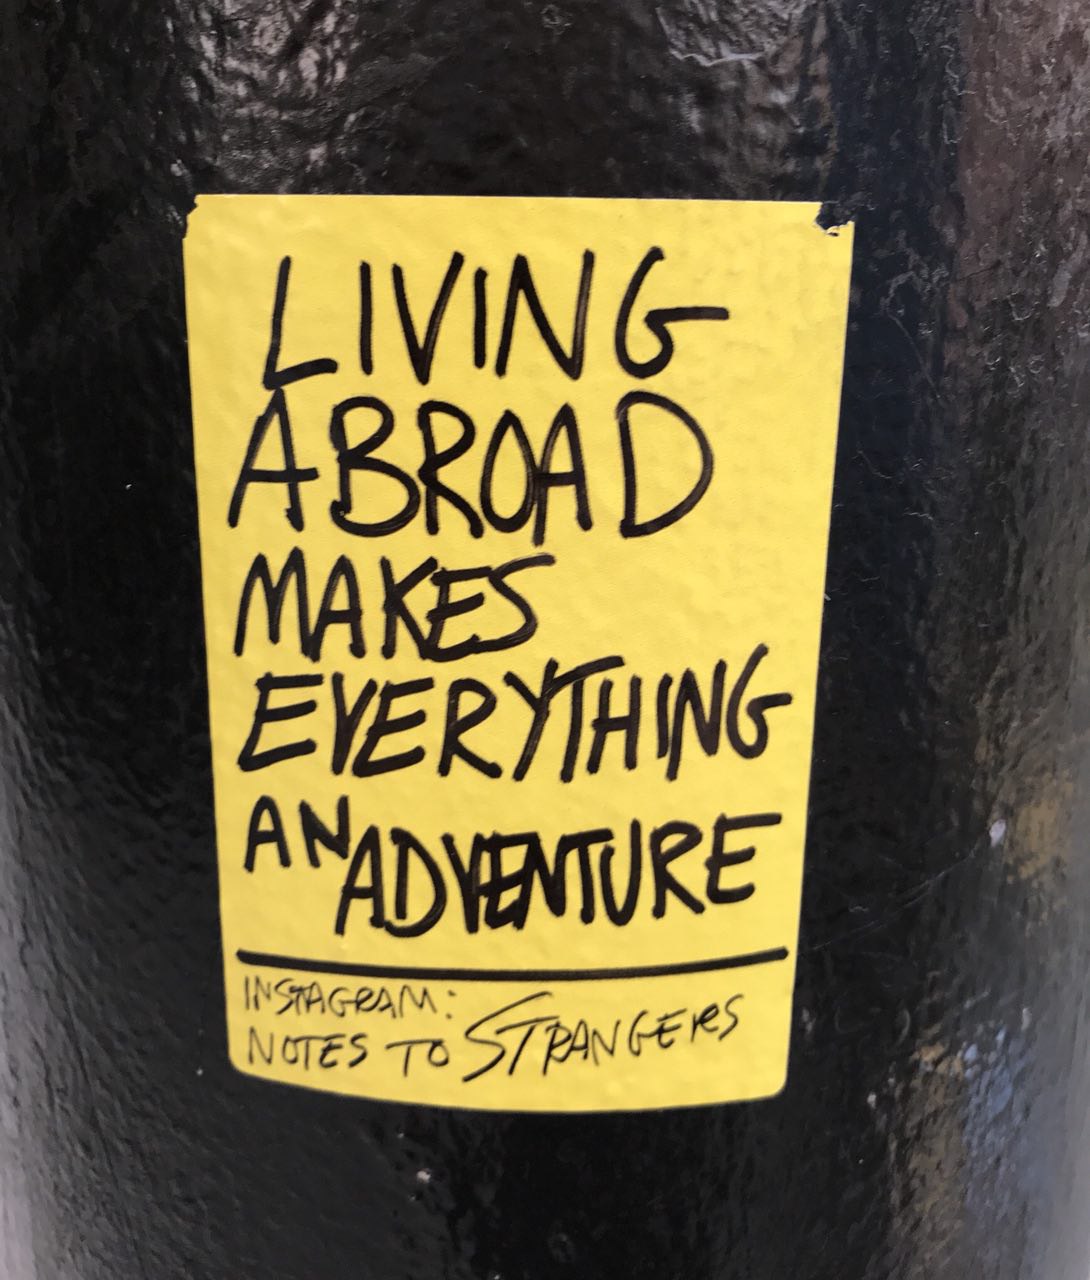 LIVING
ABROAD
MAKES
EVERYTHING
AN ADVENTURE
INSTAGRAM:
NOTES TO STRANGERS